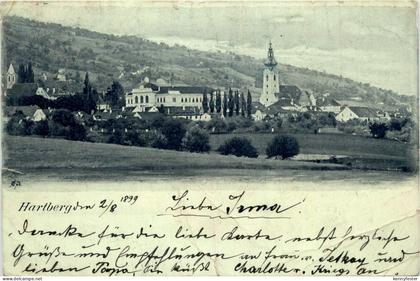 Hartberg den 2/8 1899
Liebe Irma
Danke für die liebe Karte nebst herzliche
Grüße und Empfehlungen an Frau v. Tetkay u. d.
lieben Papa, Dich küßt Charlotte v. Kriegs
kennyfester